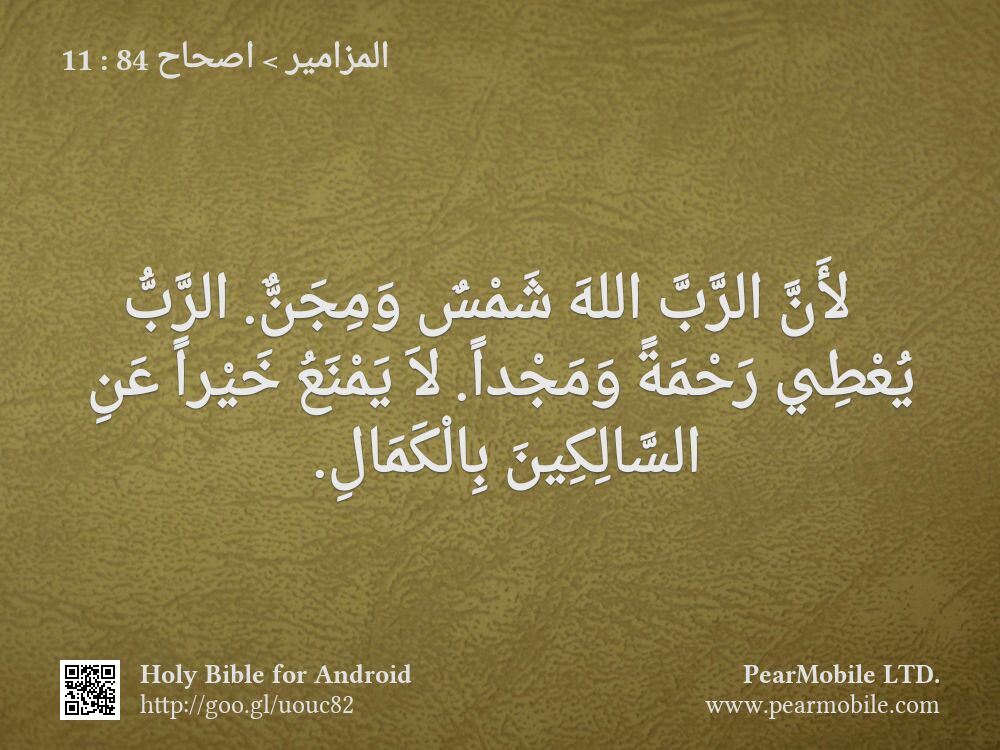 المزامير > اصحاح 84 : 11
لأَنَّ الرَّبَّ اللهَ شَمْسٌ وَمِجَنٌّ. الرَّبُّ
يُعْطِي رَحْمَةً وَمَجْداً. لاَ يَمْنَعُ خَيْراً عَنِ
السَّالِكِينَ بِالْكَمَالِ.
Holy Bible for Android
http://goo.gl/uouc82
PearMobile LTD.
www.pearmobile.com